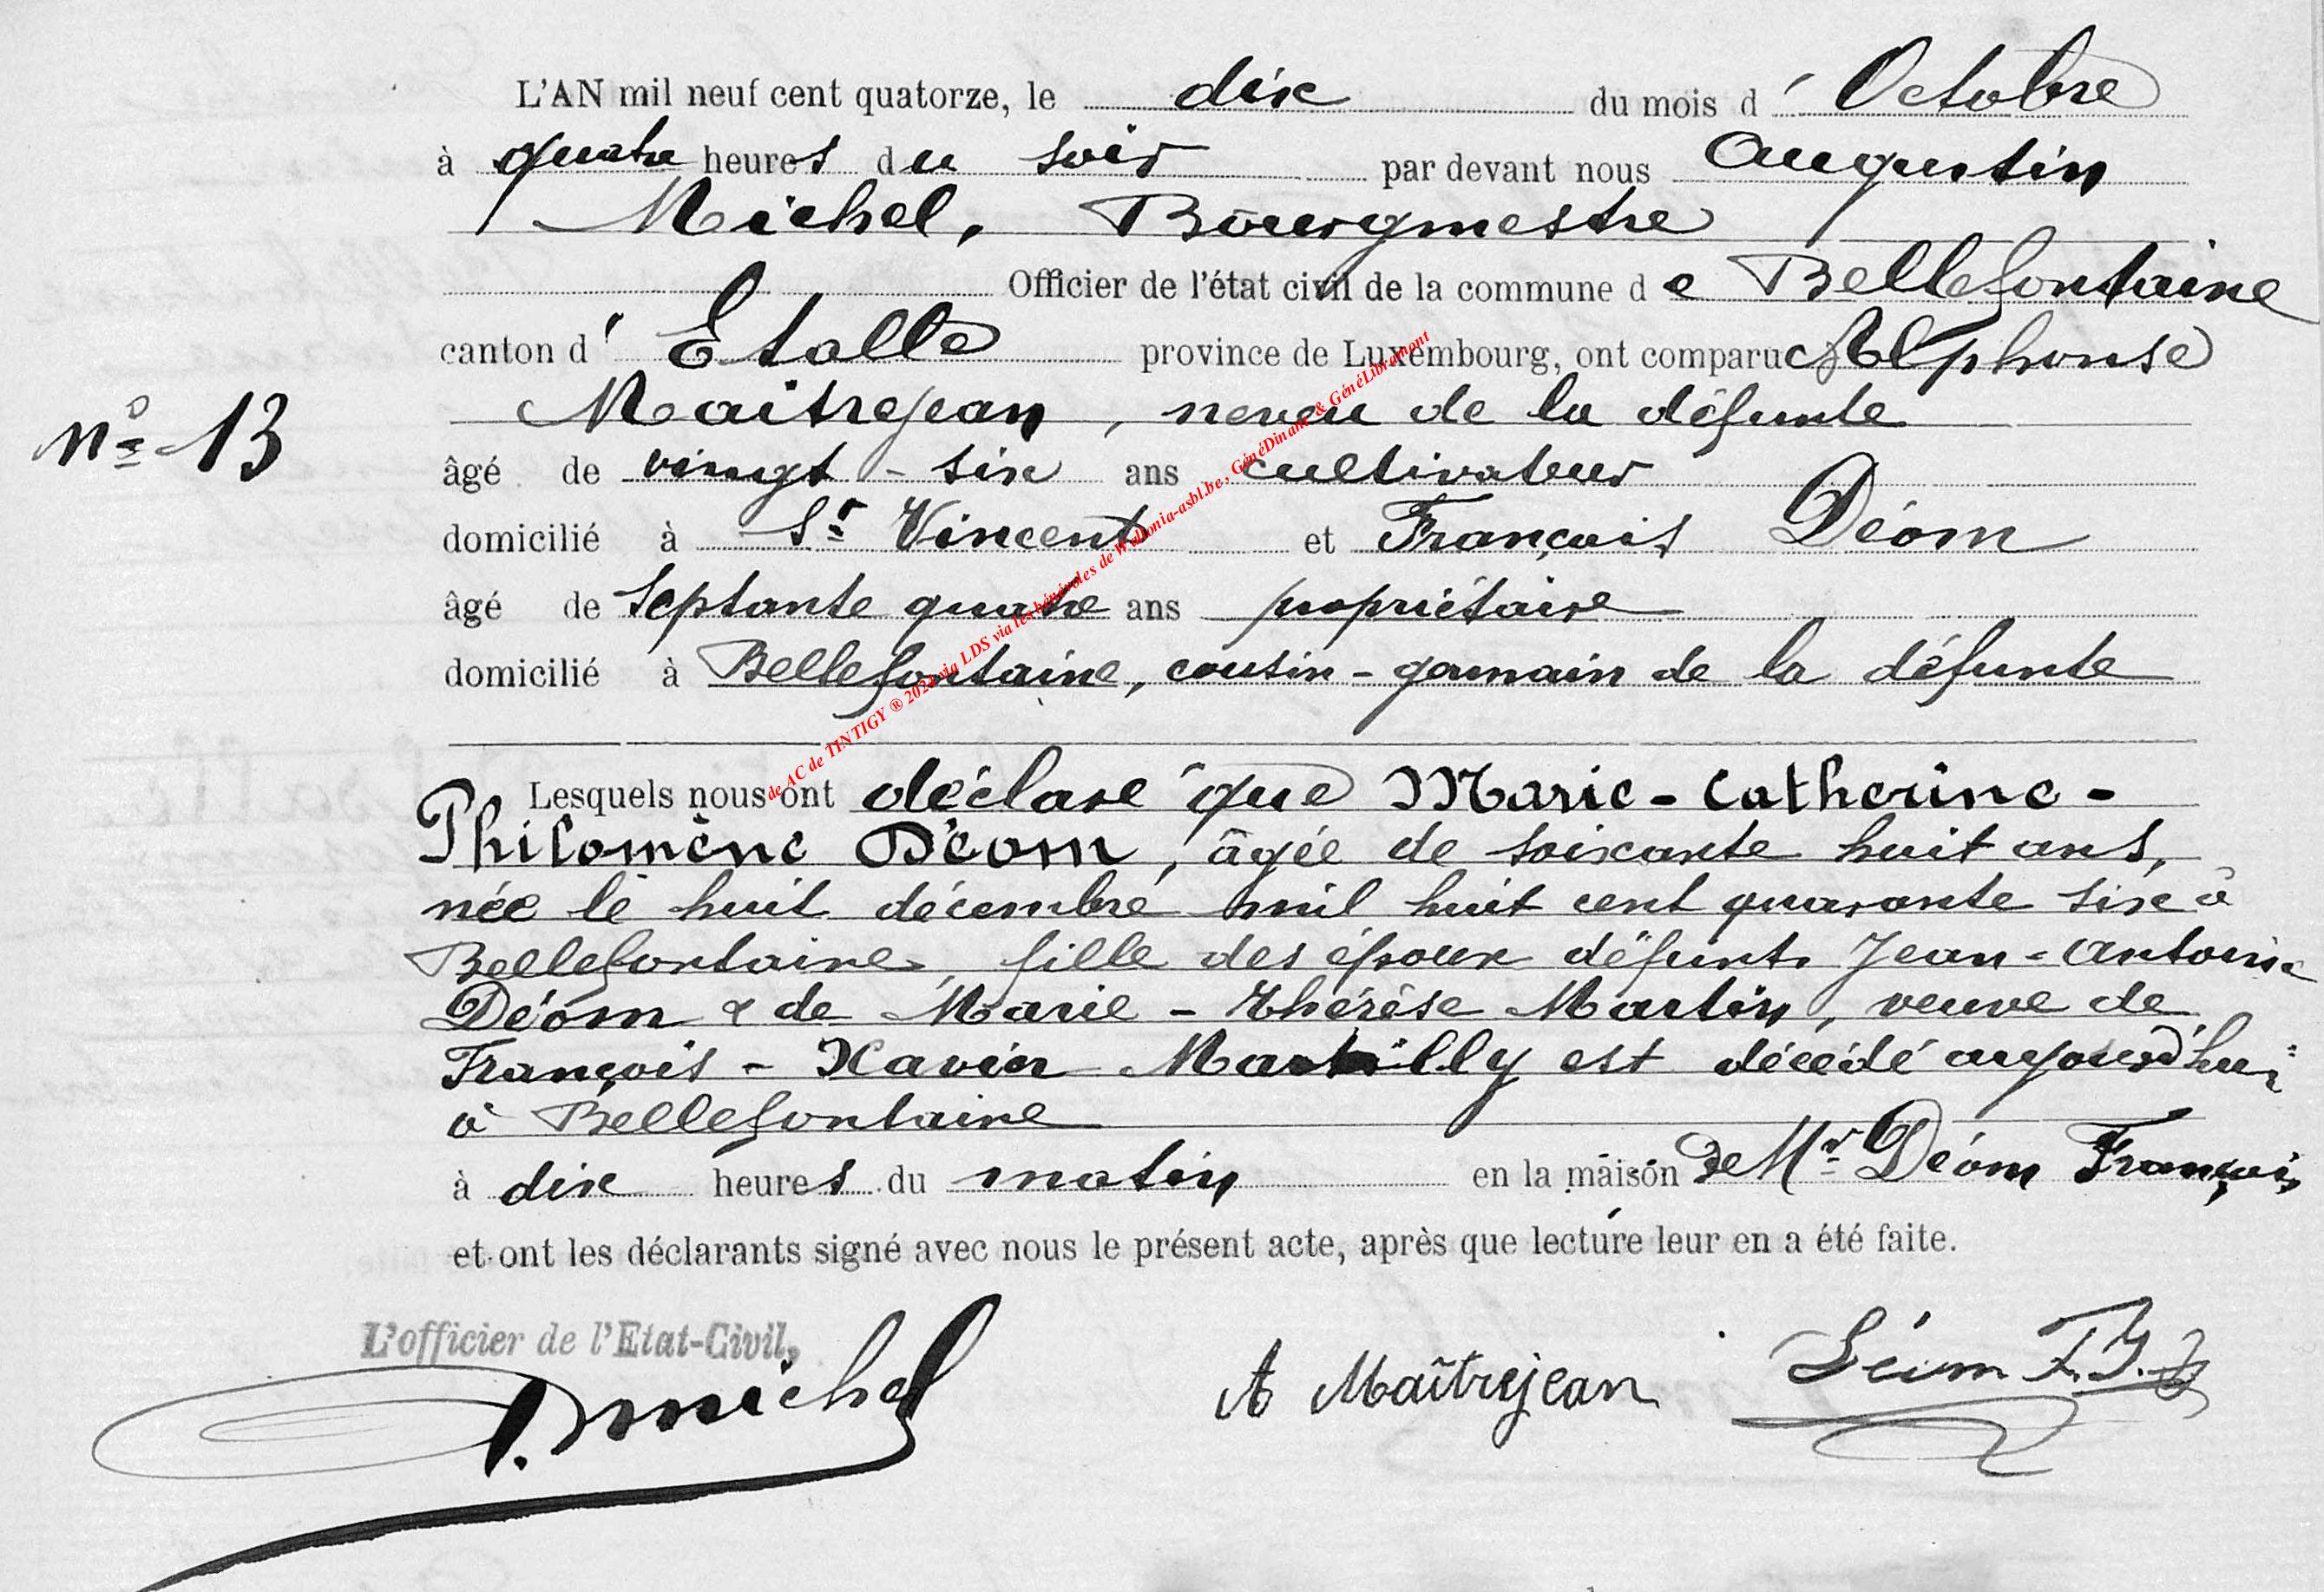 L'AN mil neuf cent quatorze, le dix du mois d' Octobre
à quatre heures du soir par devant nous Augustin
Michel, Bourgmestre
Officier de l'état civil de la commune de Bellefontaine
canton d' Etalle province de Luxembourg, ont comparu Alphonse
Maitrejean, neveu de la défunte
n° 13
âgé de vingt-six ans cultivateur
domicilié à St Vincent et François Déom
âgé de Septante quatre ans propriétaire
domicilié à Bellefontaine, cousin-germain de la défunte
Lesquels nous ont déclaré que Marie-Catherine-
Philomène Déom, âgée de soixante huit ans,
née le huit décembre mil huit cent quarante six à
Bellefontaine, fille des époux défunts Jean-Antoine
Déom & de Marie-Thérèse Martin, veuve de
François-Xavier est décédé aujourd'hui
à Bellefontaine
à dix heures du matin en la maison de Mr Déom François
et ont les déclarants signé avec nous le présent acte, après que lecture leur en a été faite.
L'officier de l'Etat-Civil,
A Maîtrejean
michel
de AC de TINTIGY ® 2024 via LDS via les bénévoles de Wallonia-asbl.be, GénéDinant & GénéLibramont